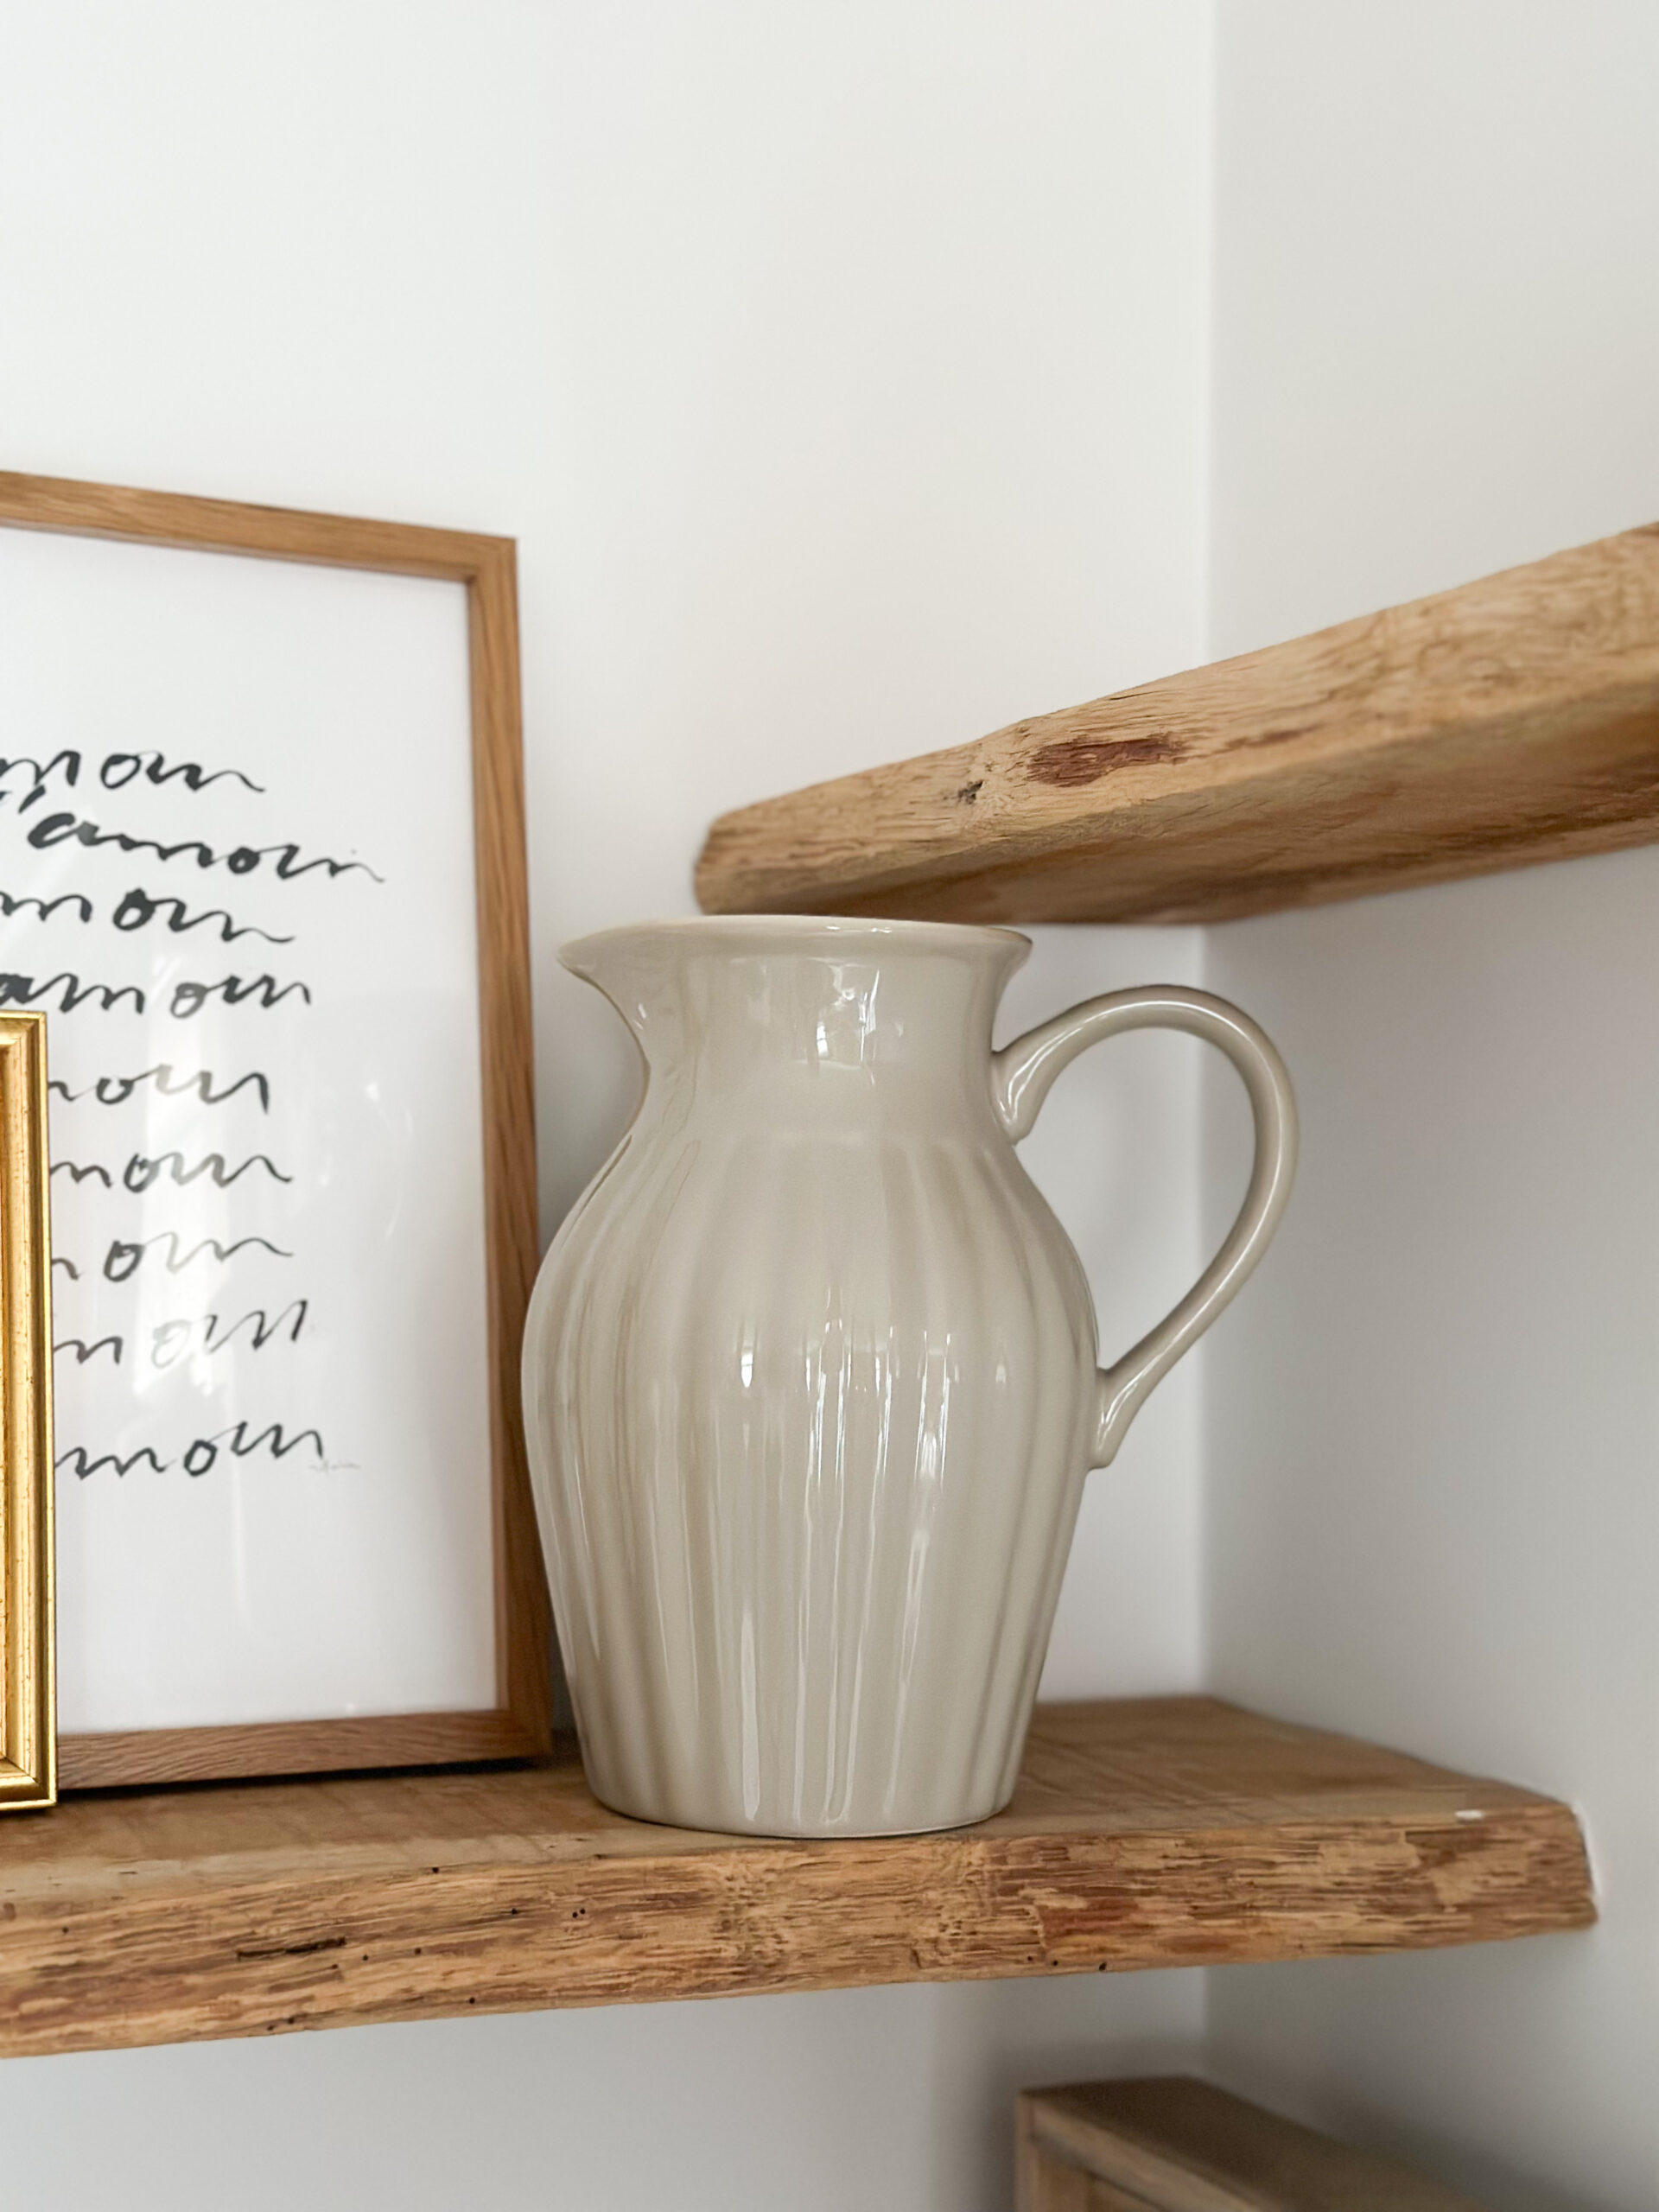 mour
l'amour
mour
amour
mour
mour
mour
mour
amour